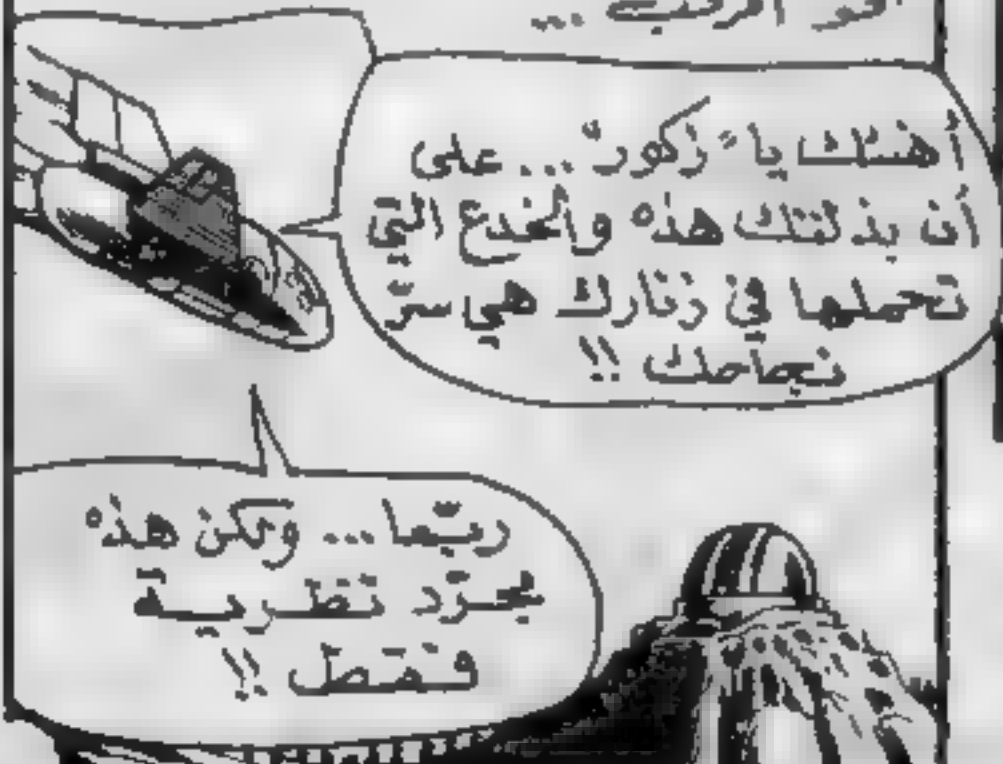 أهنئك يا "زكور" ... على
أن بذلتك هذه والخدع التي
تحملها في زنارك هي سرّ
نجاحك !!
ربّما ... ولكن هذه
مجرّد نظرية
فقط !!